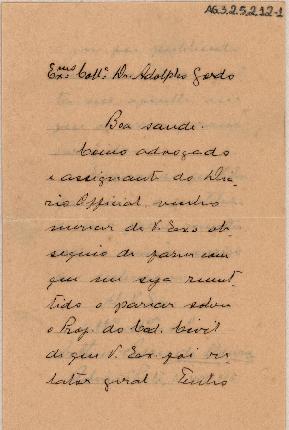 AG3.2.5.2.12-1
Exmo Colla. Dr. Adolpho Gordo
Boa saude.
Como advogado
e assignante do Dia-
rio Official, venho
merecer de V. Exa o ob-
sequio de fazer com
que me seja remet-
tido o parecer sobre
o Proj. do Cod. Civil
de que V. Exa. foi re-
lator geral. Tenho